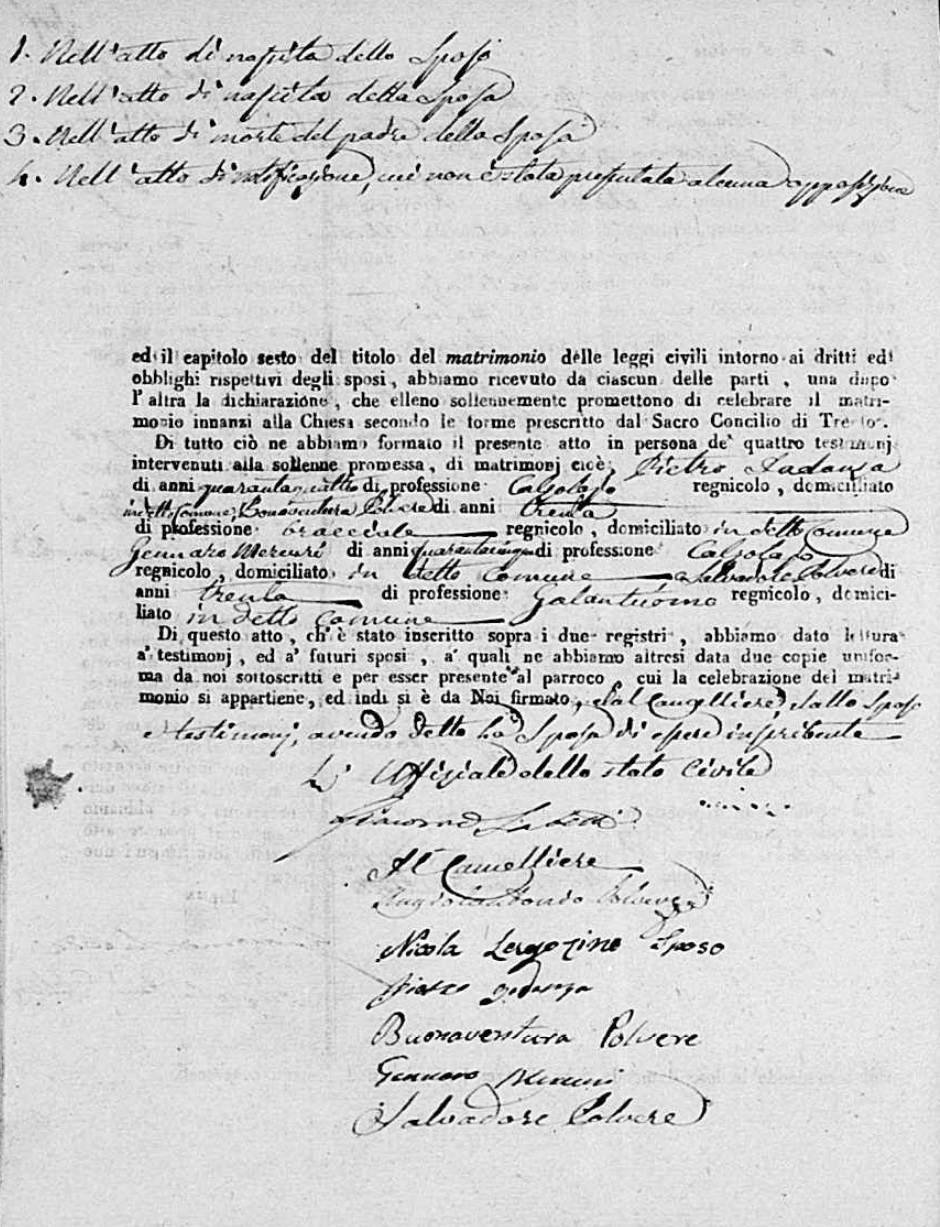 1. Nell'atto di nascita dello Sposo
2. Nell'atto di nascita della Sposa
3. Nell'atto di morte del padre della Sposa
4. Nell'atto di notificazione, cui non è stata presentata alcuna opposizione
ed il capitolo sesto del titolo del matrimonio delle leggi civili intorno ai dritti ed
obblighi rispettivi degli sposi, abbiamo ricevuto da ciascun delle parti, una dopo
l'altra la dichiarazione, che elleno sollennemente promettono di celebrare il matri-
monio innanzi alla Chiesa secondo le forme prescritto dal Sacro Concilio di Trento.
Di tutto ciò ne abbiamo formato il presente atto in persona de' quattro testimonj
intervenuti alla sollenne promessa, di matrimonj cioè; Pietro Iadanza
di anni quarantaquattro di professione Calzolajo regnicolo, domiciliato
in detto Comune, Bonaventura Polvere di anni trenta
di professione bracciale regnicolo, domiciliato in detto Comune
Gennaro Mercuri di anni quarantacinque di professione Calzolajo
regnicolo, domiciliato in detto Comune e Salvadore Polvere di
anni trenta di professione Galantuomo regnicolo, domici-
liato in detto Comune
Di questo atto, ch'è stato inscritto sopra i due registri, abbiamo dato lettura
a' testimonj, ed a' futuri sposi, a' quali ne abbiamo altresì data due copie unifor-
ma da noi sottoscritti e per esser presente al parroco cui la celebrazione del matri-
monio si appartiene, ed indi si è da Noi firmato, dal Cancelliere dallo Sposo
e testimonj, avendo detto la Sposa di essere inscribente
L'Uffiziale dello stato Civile
Il Cancelliere
Polvere
Nicola Sposo
Pietro Iadanza
Buonaventura Polvere
Gennaro Mercuri
Salvadore Polvere